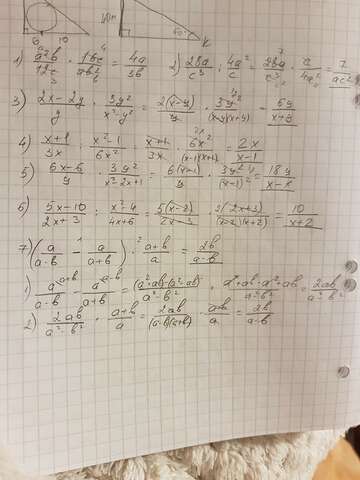 6 10 K
1) a²b/12c · 16c/ab² = 4a/3b 2) 28a/c³ : 4a²/c = 28a/c³ · c/4a² = 7/ac²
3) 2x-2y/y · 3y²/x²-y² = 2(x-y)/y · 3y²/(x-y)(x+y) = 6y/x+y
4) x+1/3x : x²-1/6x² = x+1/3x · 6x²/(x-1)(x+1) = 2x/x-1
5) 6x-6/y · 3y²/x²-2x+1 = 6(x-1)/y · 3y²/(x-1)² = 18y
6) 5x-10/2x+3 : x²-4/4x+6 = 5(x-2)/2x+3 · 2(2x+3)/(x-2)(x+2) = 10/x+2
7) (a/a-b - a/a+b) · a+b/a = 2b/a-b
1) a/a-b - a/a+b = (a²+ab)-(a²-ab)/a²-b² = a²+ab-a²+ab/a²-b² = 2ab/a²-b²
2) 2ab/a²-b² · a+b/a = 2ab/(a-b)(a+b) · a+b/a = 2b/a-b